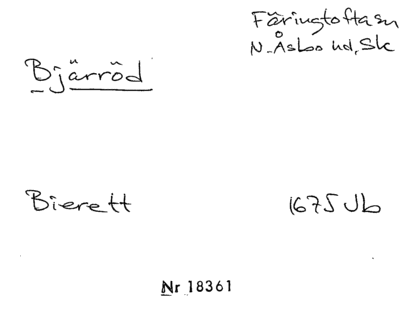 Färingtofta sn
N. Åsbo hd, Sk
Bjärröd
Bierett 1675 Jb
Nr 18361